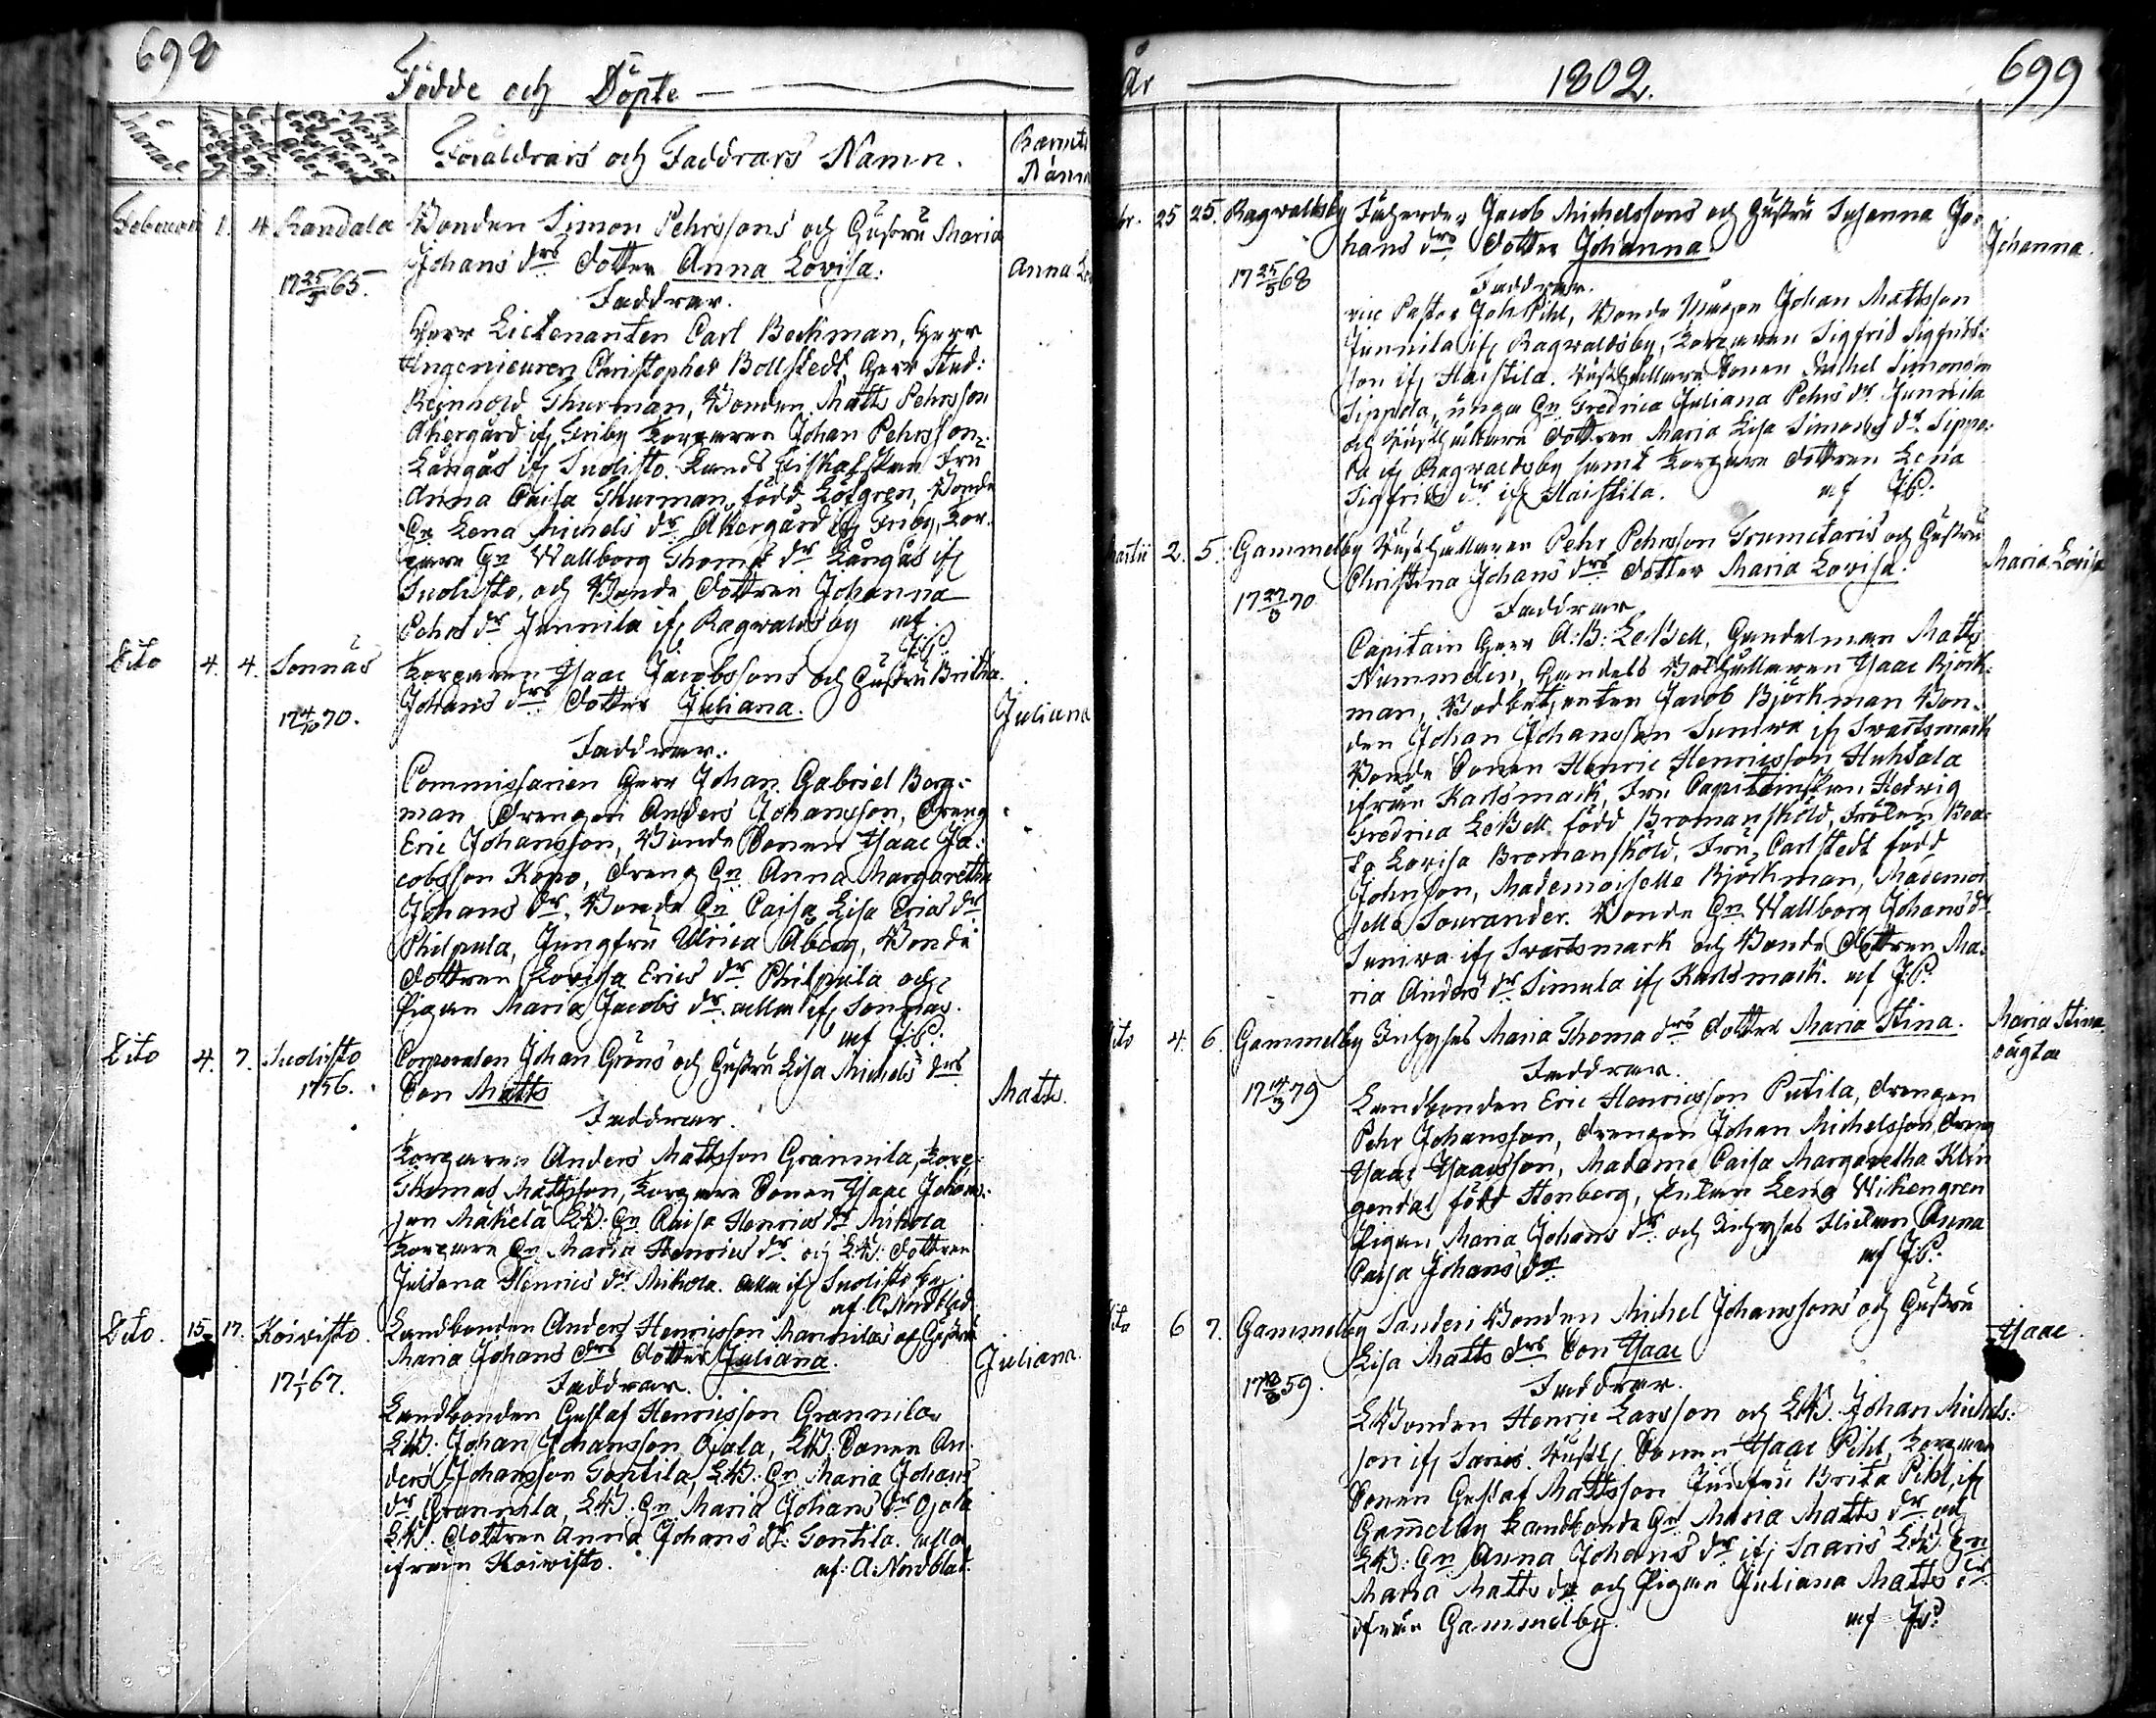 698
Födde och Döpte
Föräldrars och Faddrars Namn.
Barnets
Namn
Februarii 1. 4. Randala Bonden Simon Pehrssons och Hustru Maria
Johans drs dotter Anna Lovisa. Anna Lov
17 25/5 65.
Faddrar.
Herr Lieutenanten Carl Beckman, Herr
Ingenieuren Christopher Bollstedt, Herr Stud:
Reinhold Thurman, Bonden Matts Pehrsson
Åkergård ifr Friby Torparen Johan Pehrsson
Långås ifr Suolisto. Lands Fiskalskan Fru
Anna Caisa Thurman, född Löfgren, Bonde
Hn Lena Michels dr Åkergård ifr Friby, Tor-
pare Hn Wallborg Thomæ dr Långås ifr
Suolisto, och Bonde dottren Johanna
Pehrs dr Junnila ifr Ragwaldsby af
J:P:
Dito 4. 4. Sonnäs Torparen Isaac Jacobssons och Hustru Britha
Johans drs dotter Juliana. Juliana
17 4/10 70.
Faddrar.
Commissarien Herr Johan Gabriel Berg-
man drengen Anders Johansson, dreng
Eric Johansson, Bonde Sonen Isaac Ja-
cobsson Kopo, dreng Hn Anna Margaretha
Johans dr, Bonde Hn Caisa Lisa Erics dr
Philpula, Jungfru Ulrica Åberg, Bonde
dottren Lovisa Erics dr Philpula och
Pigan Maria Jacobs dr alla ifr Sonnäs.
af J:P:
Dito 4. 7. Suolisto Corporalen Johan Gröns och Hustru Lisa Michels drs
1756. Son Matts Matts.
Faddrar.
Torparen Anders Mattsson Grannila, Torp:
Thomas Mattsson, Torpare Sonen Isaac Johans-
son Mäkelä LB: Hn Caisa Henrics dr Mikola
Torpare Hn Maria Henrics dr och LB: dottren
Juliana Henrics dr Mikola. alla ifr Suolisto by
af A. Nordblad.
Dito. 15 17. Koivisto. Landbonden Anders Henricsson Mannilas och Hustru
Maria Johans drs dotter Juliana. Juliana
17 1/1 67.
Faddrar.
Landbonden Gustaf Henricsson Grannila
LB: Johan Johansson Ojala, LB: Sonen An-
ders Johansson Tontila, LB: Hn Maria Johans
dr Grannila, LB: Hn Maria Johans dr Ojala
LB: dottren Anna Johans dr Tontila. alla
ifrån Koivisto. af: A. Nordblad.
År 1802. 699
25 25. Ragwaldsby Jacob Michelssons och Hustru Susanna Jo-
hans drs dotter Johanna. Johanna.
17 25/5 68
Faddrar.
Pastor Joh Pihl, Bonde Mågen Johan Mattsson
Junnila ifr Ragwaldsby, Torparen Sigfrid Sigfrids-
son ifr Haistila. Rusthållare Sonen Michel Simonsson
Sippola, unga Hn Fredrica Juliana Pehrs dr Junnila
och Rusthållare dottren Maria Lisa Simons dr Sippo-
la ifr Ragwaldsby samt Torpare dottren Lena
Sigfrids dr ifr Haistila. af J:P:
Martii 2. 5. Gammelby Rusthållaren Pehr Pehrsson Trumetaris och Hustru
Christina Johans drs dotter Maria Lovisa. Maria Lovisa
17 27/3 70
Faddrar.
Capitain Herr A:B: LeBell, Handelman Matts
Nummelin, Handels Bokhållaren Isaac Björk-
man, Bodbetjenten Jacob Björkman Bon-
den Johan Johansson Suniva ifr Svartsmark
Bonde Sonen Henric Henricsson Huhtala
ifrån Karlsmark, Fru Capitainskan Hedvig
Fredrica LeBell född Bromansköld, Fröken Bea-
ta Lovisa Bromansköld, Fru Carlstedt född
Johnson, Mademoiselle Björkman, Mademoi
selle Sourander. Bonde Hn Wallborg Johans dr
Suniva ifr Svartsmark och Bonde dottren Ma-
ria Anders dr Simula ifr Karlsmark. af J:P:
Dito 4. 6. Gammelby Inhyses Maria Thomæ drs dotter Maria Stina. Maria Stina
oägta
17 14/3 79
Faddrar.
Landbonden Eric Henricsson Putila, drengen
Pehr Johansson, drengen Johan Michelsson, dreng
Isaac Isaacsson, Madame Caisa Margaretha Klin
gendal född Stenberg, Enkan Lena Wikengren
Pigan Maria Johans dr och Inhyses Flickan Anna
Caisa Johans dr af J:P:
Dito 6 7. Gammelby Landbonden Michel Johanssons och Hustru
Lisa Matts drs Son Isaac Isaac.
59.
Faddrar.
LBonden Henric Larsson och LB. Johan Michels-
son ifr Saaris. Rusth: Sonen Isaac Pihl, Torpare
Sonen Gustaf Mattsson Jungfru Brita Pihl, ifr
Gammelby Landbonde Hn Maria Matts dr och
LB: Hn Anna Johans dr ifr Saaris LB: Hn
Maria Matts dr och Pigan Juliana Matts dr
ifrån Gammelby. af J:P: